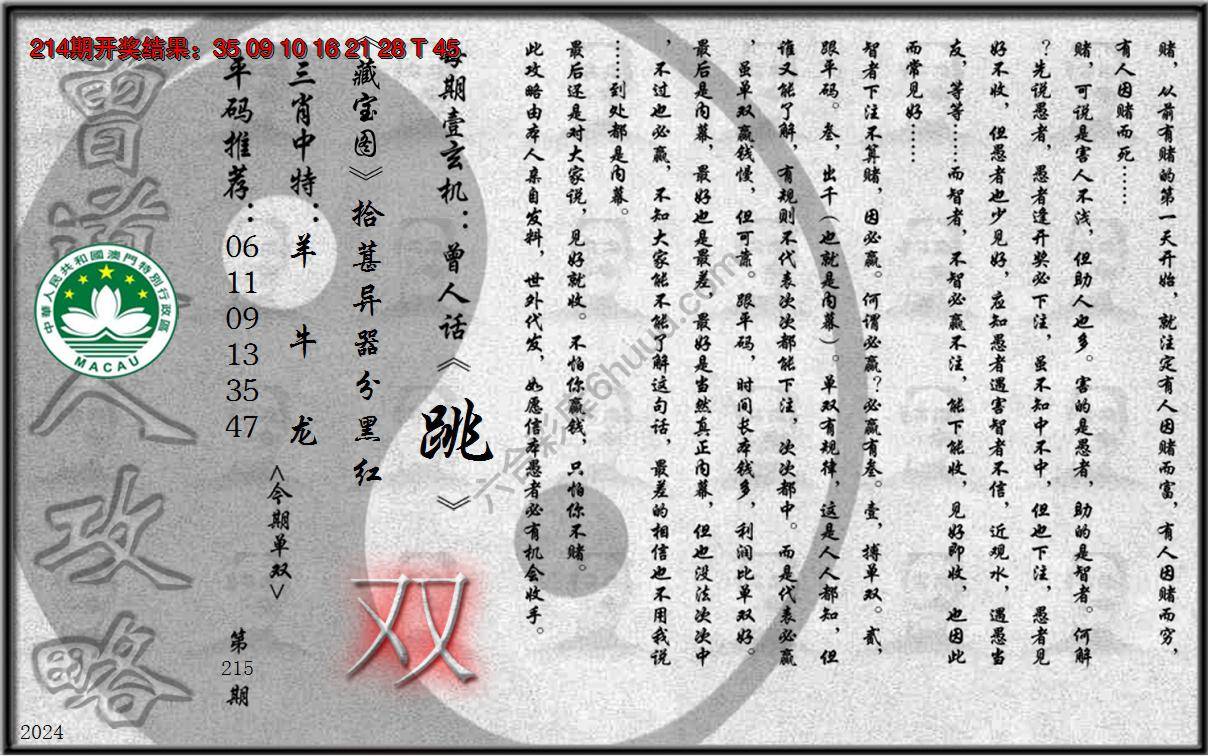 214期开奖结果：35 09 10 16 21 28 T 45
赌，从前有赌的第一天开始，就注定有人因赌而富，有人因赌而穷，
有人因赌而死……
赌，可说是害人不浅，但助人也多。害的是愚者，助的是智者。何解
？先说愚者，愚者逢开奖必下注，虽不知中不中，但也下注，愚者见
好不收，但愚者也少见好，应知愚者遇害智者不信，近观水，遇愚当
友，等等……而智者，不智必赢不注，能下能收，见好即收，也因此
而常见好……
智者下注不算赌，因必赢。何谓必赢？必赢有叁。壹，搏单双。贰，
跟平码。叁，出千（也就是内幕）。单双有规律，这是人人都知，但
谁又能了解，有规则不代表次次都能下注，次次都中。而是代表必赢
，虽单双赢钱慢，但可靠。跟平码，时间长本钱多，利润比单双好。
最后是内幕，最好也是最差，最好是当然真正内幕，但也没法次次中
，不过也必赢，不知大家能不能了解这句话，最差的相信也不用我说
……到处都是内幕。
最后还是对大家说，见好就收。不怕你赢钱，只怕你不赌。
此攻略由本人亲自发料，世外代发，如愿信本愚者必有机会收手。
每期壹玄机：曾人话《跳》
《藏宝图》拾葚异器分黑红
三肖中特：羊 牛 龙
<今期单双>
双
平码推荐：
06
11
09
13
35
47
第
215
期
曾道人攻略
中華人民共和國澳門特別行政區
MACAU
六合彩库6huuu.com
2024